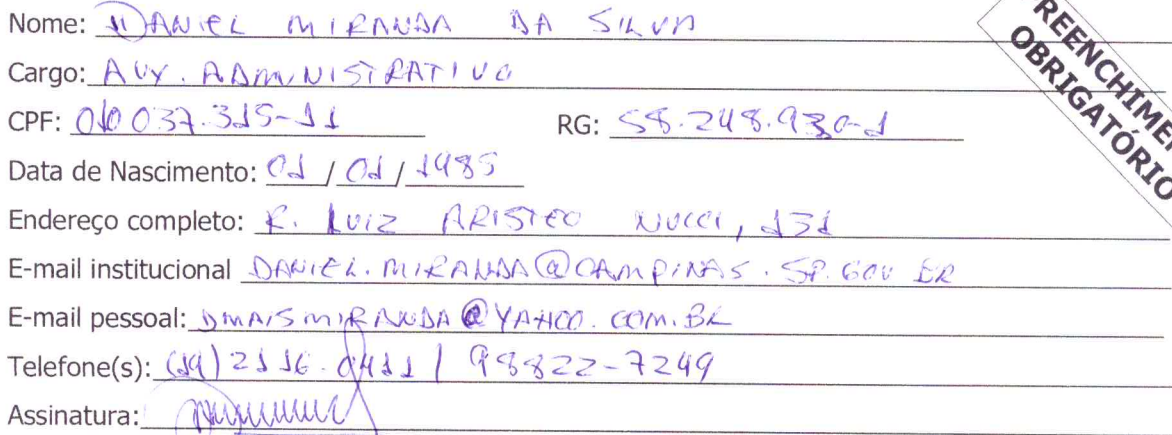 Nome: DANIEL MIRANDA DA SILVA
Cargo: AUX. ADMINISTRATIVO
CPF: 010 037.315-11 RG: 58.248.930-1
Data de Nascimento: 01 / 01 / 1985
Endereço completo: R. LUIZ ARISTEO NUCCI, 131
E-mail institucional DANIEL.MIRANDA@CAMPINAS.SP.GOV BR
E-mail pessoal: DMAISMIRANDA@YAHOO.COM.BR
Telefone(s): (19) 2116.0411 / 98822-7249
Assinatura:
REENCHIMEN
OBRIGATÓRIO